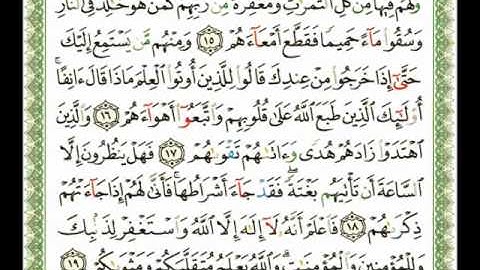 وَلَهُمْ فِيهَا مِن كُلِّ ٱلثَّمَرَٰتِ وَمَغْفِرَةٌ مِّن رَّبِّهِمْ كَمَنْ هُوَ خَٰلِدٌ فِى ٱلنَّارِ
وَسُقُوا۟ مَآءً حَمِيمًا فَقَطَّعَ أَمْعَآءَهُمْ ١٥ وَمِنْهُم مَّن يَسْتَمِعُ إِلَيْكَ
حَتَّىٰٓ إِذَا خَرَجُوا۟ مِنْ عِندِكَ قَالُوا۟ لِلَّذِينَ أُوتُوا۟ ٱلْعِلْمَ مَاذَا قَالَ ءَانِفًا ۚ
أُو۟لَٰٓئِكَ ٱلَّذِينَ طَبَعَ ٱللَّهُ عَلَىٰ قُلُوبِهِمْ وَٱتَّبَعُوٓا۟ أَهْوَآءَهُمْ ١٦ وَٱلَّذِينَ
ٱهْتَدَوْا۟ زَادَهُمْ هُدًى وَءَاتَىٰهُمْ تَقْوَىٰهُمْ ١٧ فَهَلْ يَنظُرُونَ إِلَّا
ٱلسَّاعَةَ أَن تَأْتِيَهُم بَغْتَةً ۖ فَقَدْ جَآءَ أَشْرَاطُهَا ۚ فَأَنَّىٰ لَهُمْ إِذَا جَآءَتْهُمْ
ذِكْرَىٰهُمْ ١٨ فَٱعْلَمْ أَنَّهُۥ لَآ إِلَٰهَ إِلَّا ٱللَّهُ وَٱسْتَغْفِرْ لِذَنۢبِكَ
وَلِلْمُؤْمِنِينَ وَٱلْمُؤْمِنَٰتِ ۗ وَٱللَّهُ يَعْلَمُ مُتَقَلَّبَكُمْ وَمَثْوَىٰكُمْ ١٩